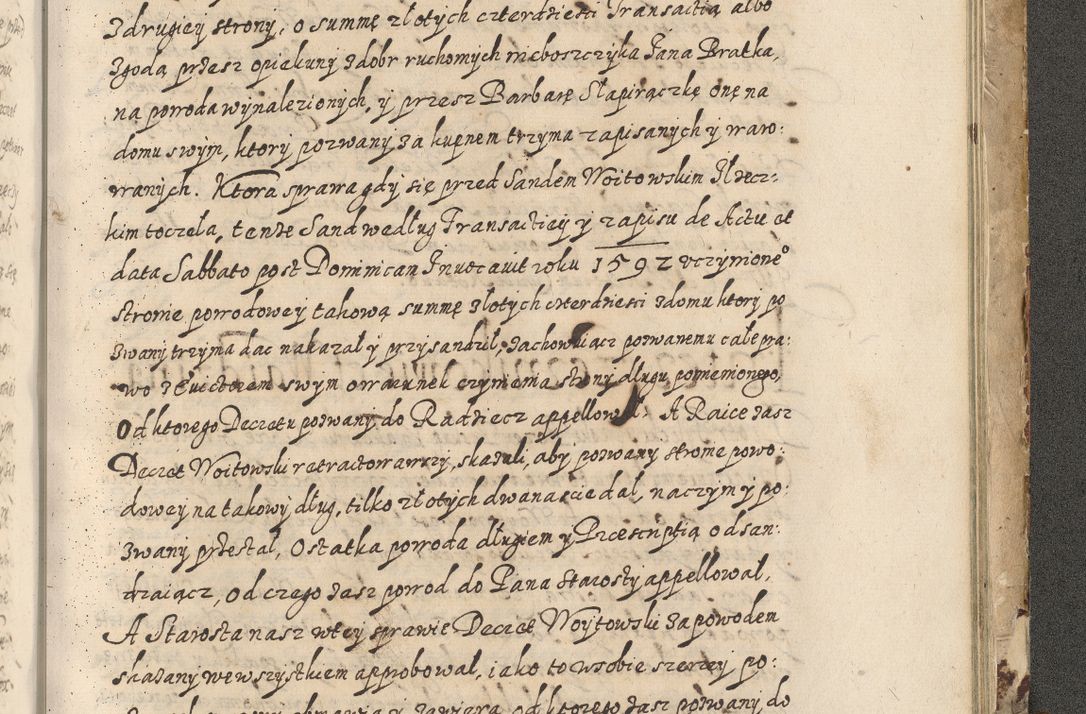 zdrugiey strony, o summę złotych czterdziesti Transactią albo
Zgodą przesz opiekuny zdobr ruchomych nieboszczyka Jana Bratka,
na powoda wynalezionych, y przesz Barbarę Słapirączkę onę na
domu swym, ktory pozwany za kupnem trzyma zapisanych y waro:
wanych. Ktora sprawa gdy się przed Sandem Woitowskim Ilzecz:
kim toczela, tenże Sand według Transactiey y zapisu de Actu et
data Sabbato post Dominicam Invocavit roku 1592 uczynione°
stronie powodowey takową summę złotych czterdziesti zdomu ktory po
zwany trzyma dac nakazał y przysandził, zachowuiącz pozwanemu całe pra:
wo z Euictorem swym o warunek czynienia strony długu pomienionego,
Od ktorego Decretu pozwany do Radziecz appellował. A Raice zasz
Decret Woitowski retractowawszy, skazali, aby pozwany stronie powo:
dowey na takowy dług, tilko złotych dwanascie dał, na czym y po:
zwany przestał, Ostatka powoda długiem y Prescriptią odsan:
dzaiącz, od czego zasz powod do Pana Starosty appellował,
A Starosta nasz wtey sprawie Decret Woytowski za powodem
skazany we wszystkiem approbował, iako to wsobie szerzey po:
zawiera, od ktorego zasz pozwany do